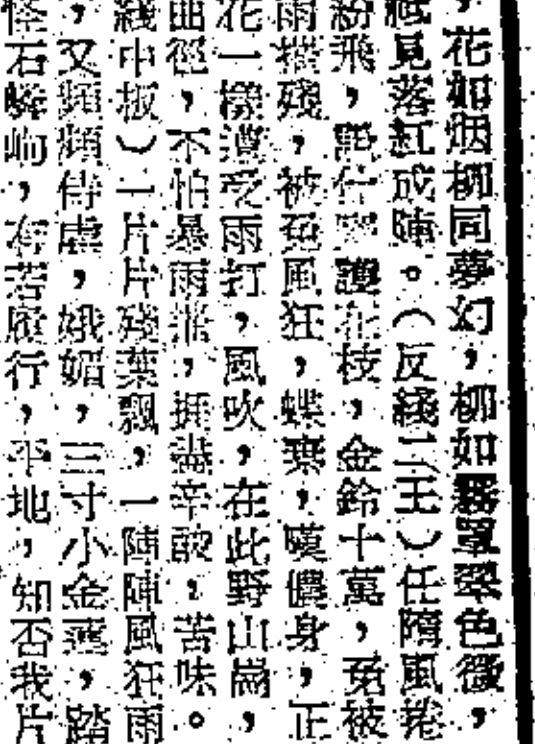 ，花如烟柳同夢幻，柳如霧罩翠色徵，
祗見落紅成陣。（反綫二王）任隋風捲
紛飛，　　　護花枝，金鈴十萬，免被
雨摧殘，被　風狂，蝶棄，嘆儂身，正
花一樣遭受雨打，風吹，在此野山崗，
曲徑，不怕暴雨　，捱盡辛酸，苦味。
綫中板）一片片殘葉飄，一陣陣風狂雨
，又頻頻侍虐，娥媚，三寸小金蓮，踏
怪石嶙峋，有若履行，平地，知否我片